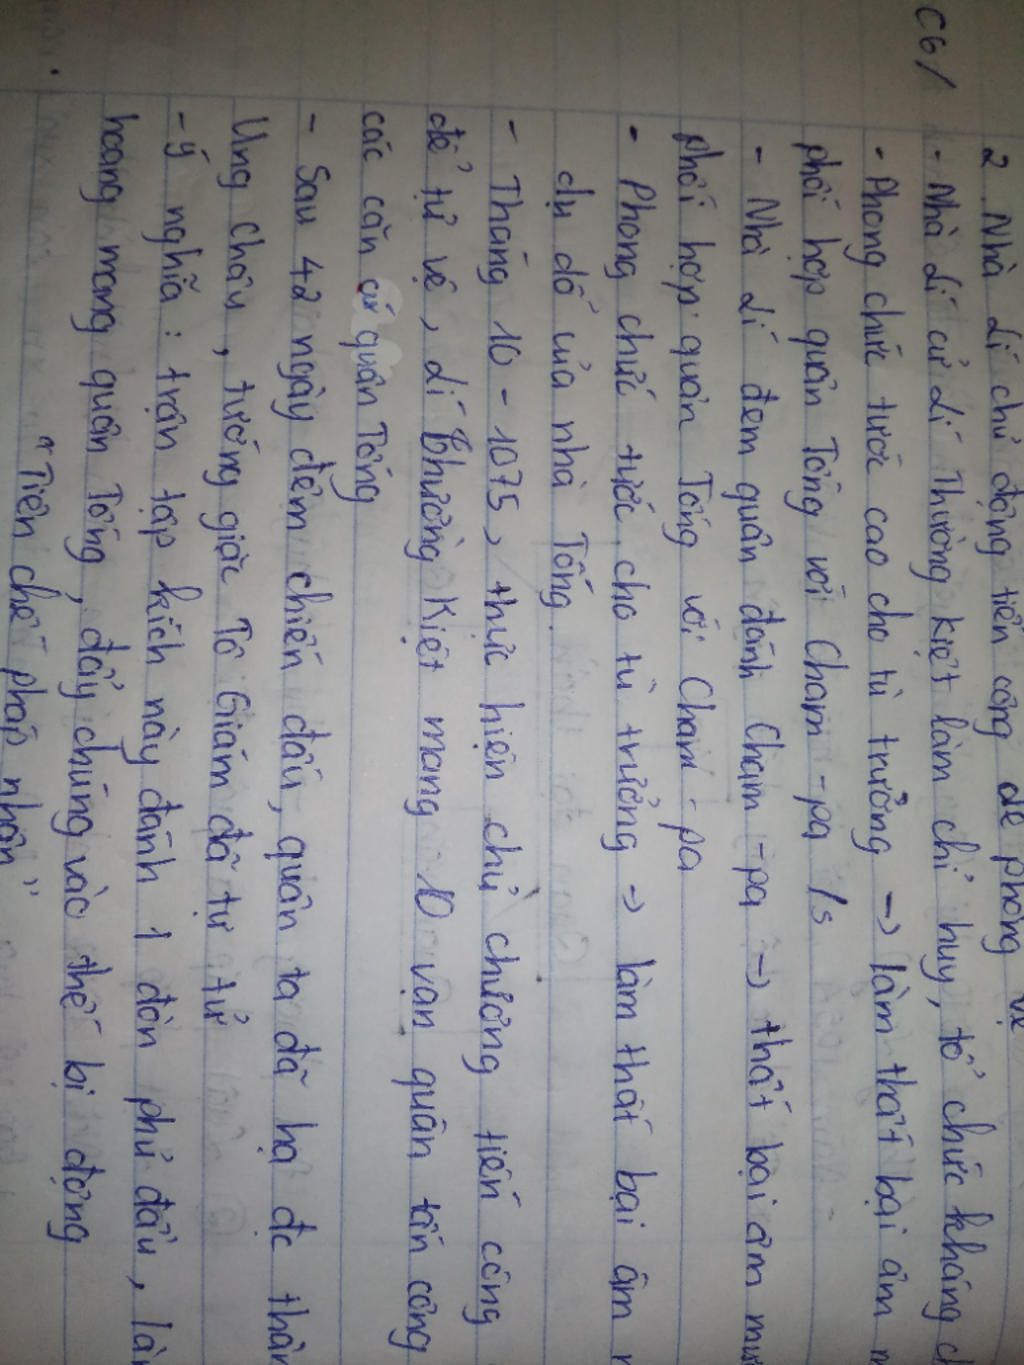 C6/
2 Nhà Lí chủ động tiến công để phòng vệ
- Nhà Lí cử Lí Thường Kiệt làm chỉ huy, tổ chức kháng
- Phong chức tước cao cho tù trưởng → làm thất bại âm
phối hợp quân Tống với Cham-pa
- Nhà Lí đem quân đánh Cham-pa → thất bại âm mư
phối hợp quân Tống với Cham-pa
- Phong chức tước cho tù trưởng => làm thất bại âm
dụ dỗ của nhà Tống.
- Tháng 10-1075, thực hiện chủ chương tiến công
để tự vệ, Lí Thường Kiệt mang 10 vạn quân tấn công
các căn cứ quân Tống
- Sau 42 ngày đêm chiến đấu, quân ta đã hạ đc thàn
Ung Châu, tướng giặc Tô Giám đã tự tử
- ý nghĩa: trận tập kích này đánh 1 đòn phủ đầu, làm
hoang mang quân Tống, đẩy chúng vào thế bị động
"Tiên chế pháp nhân"